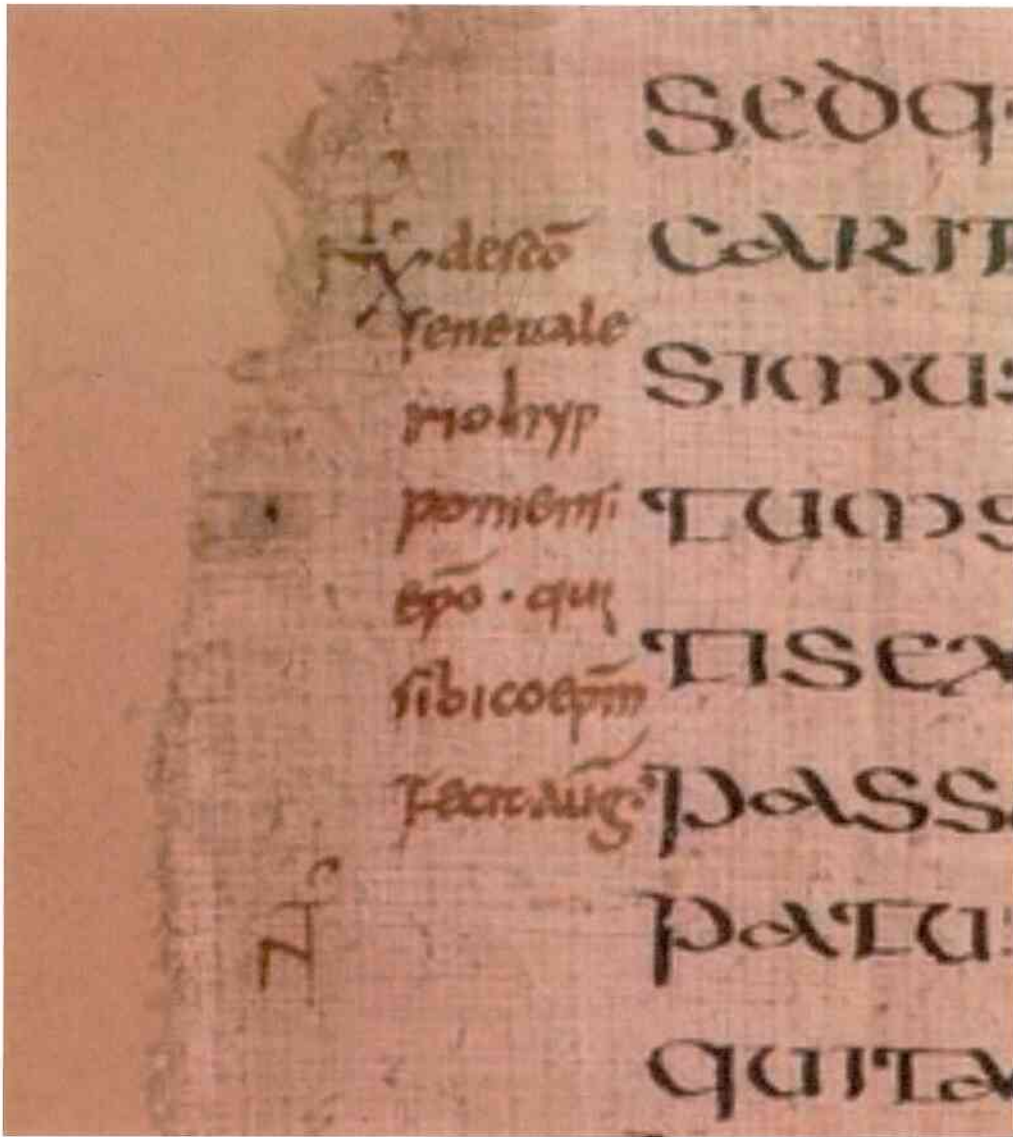 descō
seneuale
mohyp
poniensi
epō · qui
sibicoep̄m
fecitaūg·
sedq
carit
simus
tums
tisex
passa
patu
quita